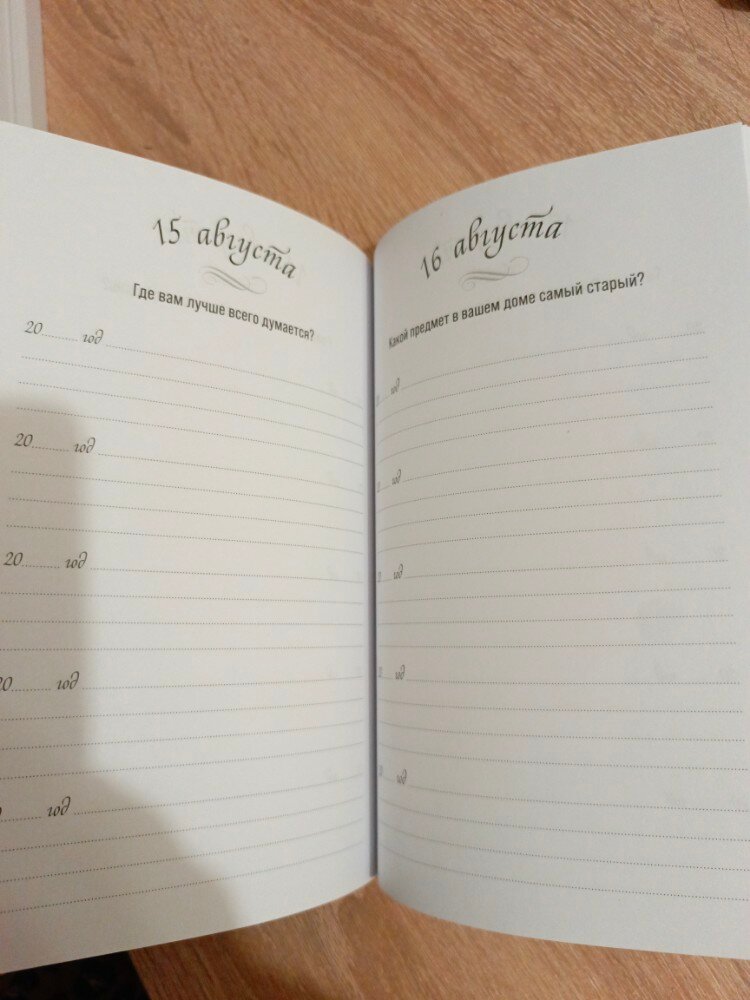 15 августа
Где вам лучше всего думается?
20 год
20 год
20 год
20 год
год
16 августа
Какой предмет в вашем доме самый старый?
год
год
год
год
год